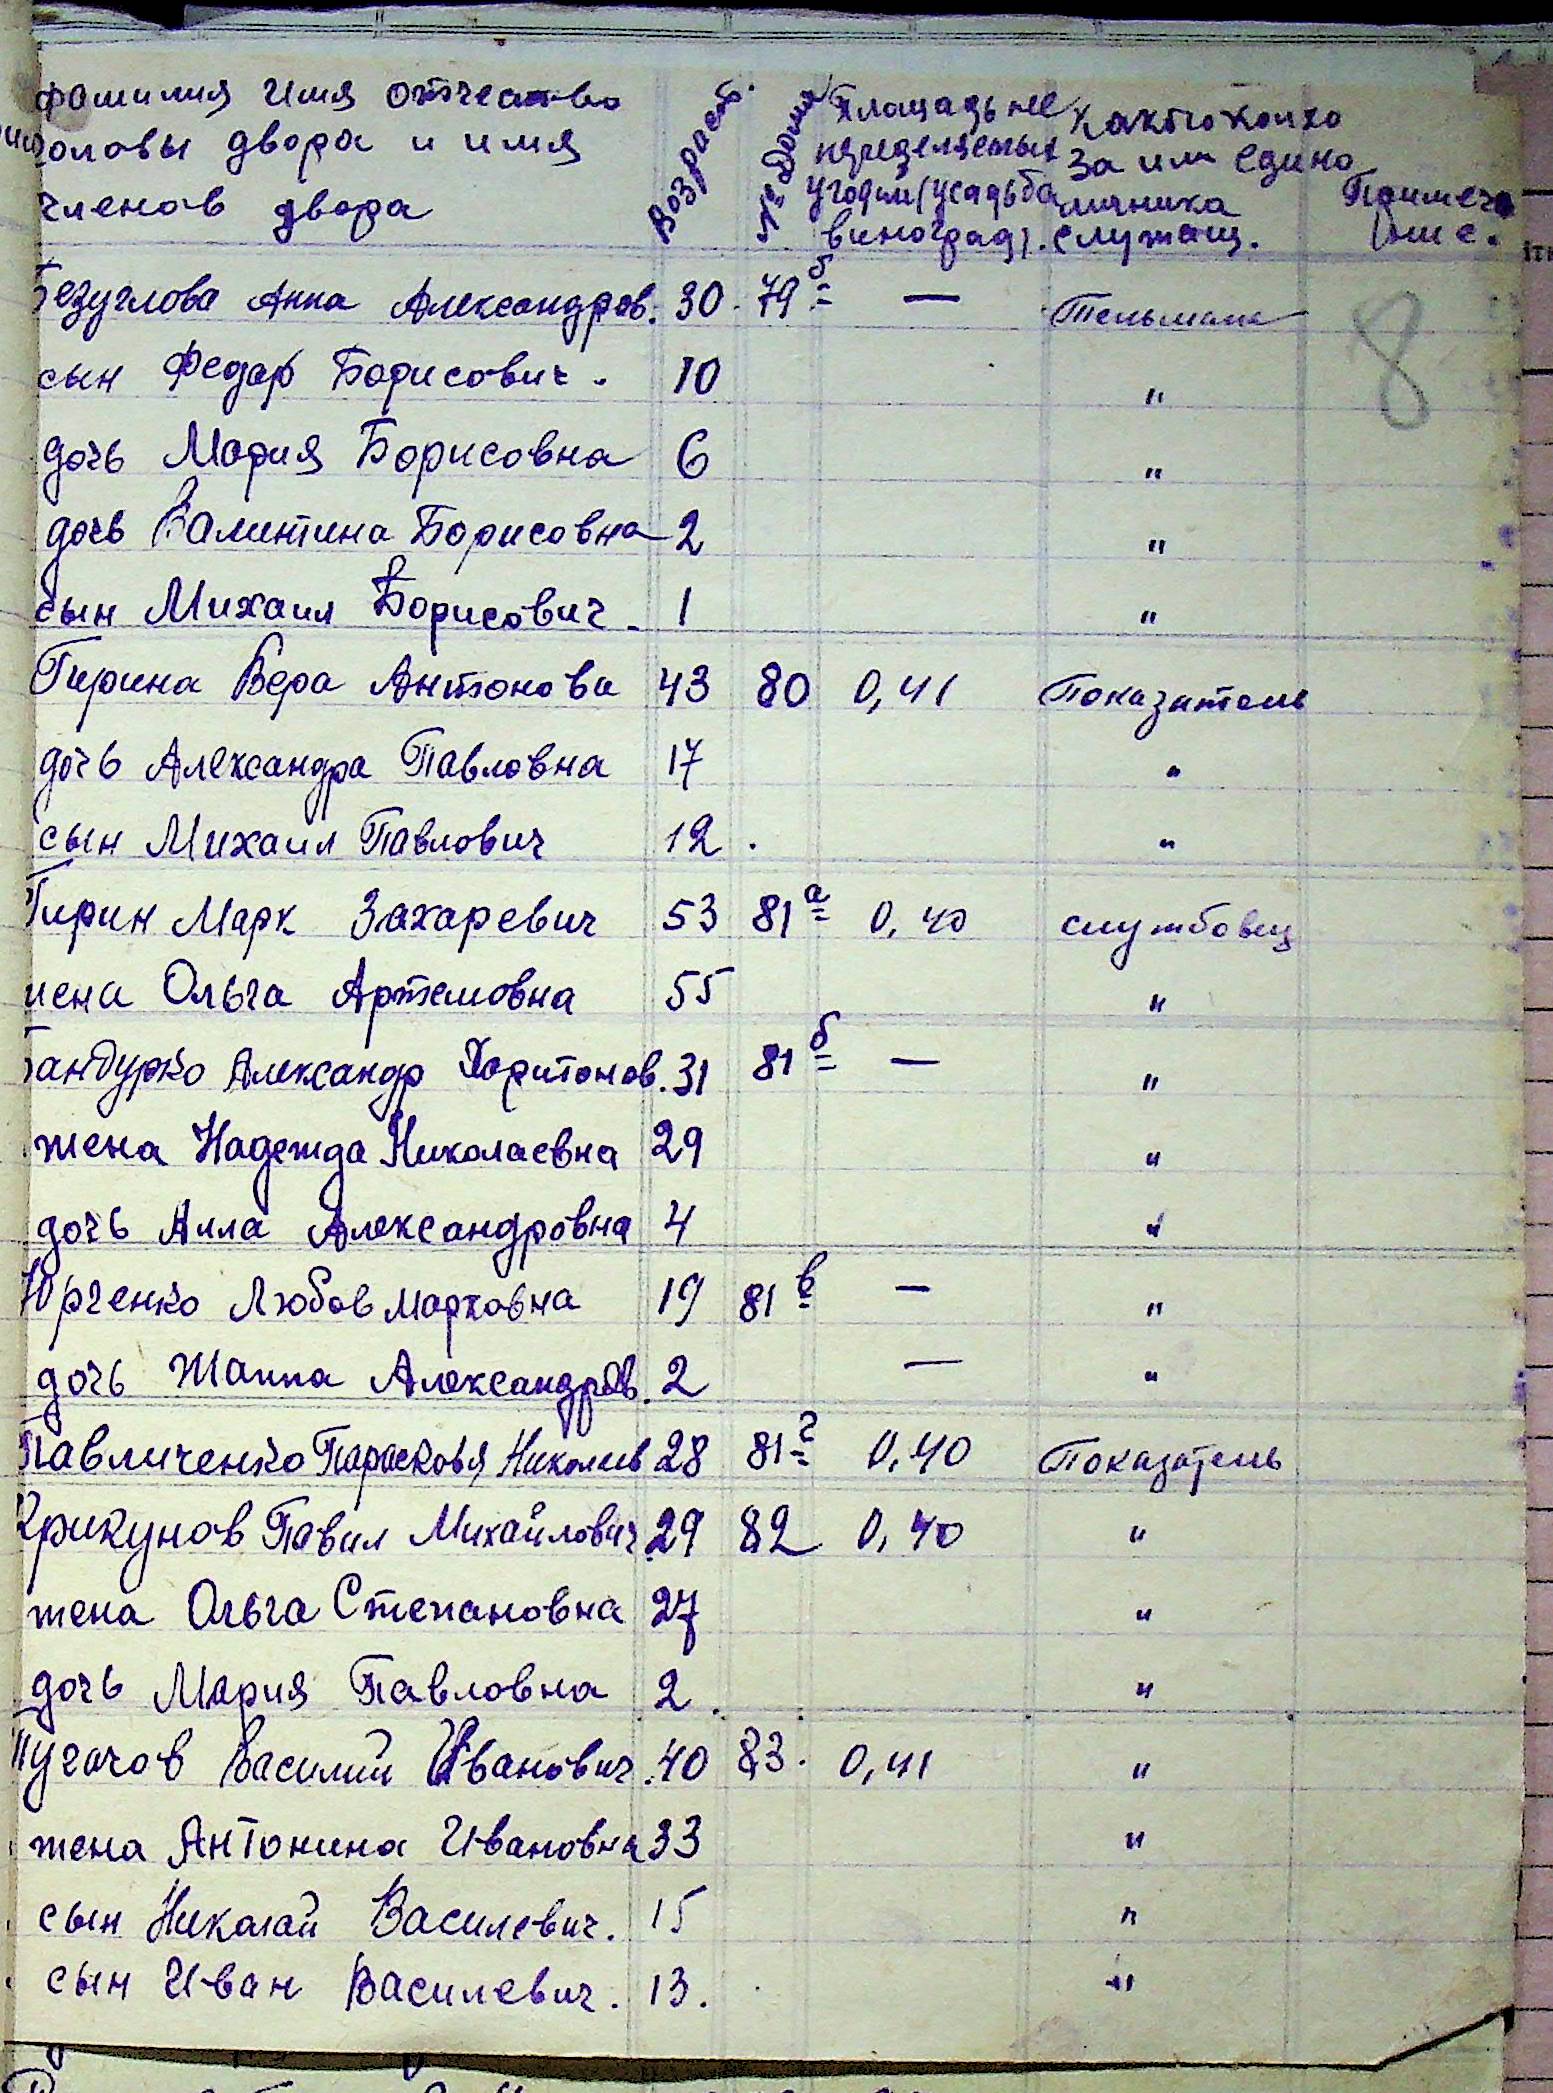 фамилия имя отчество Возраст. № Дома Площадь не какого колхо
головы двора и имя переделяемых за или едино
членов двора угодий (усадьба личника Примеча
виноград). служащ. ние.
Безуглова Анна Александров. 30. 79 б — Тельмана 8
сын Федар Борисович. 10 "
дочь Мария Борисовна 6 "
дочь Валинтина Борисовна 2 "
сын Михаил Борисович. 1 "
Гирина Вера Антонови 43 80 0,41 Показатель
дочь Александра Павловна 17 "
сын Михаил Павлович 12. "
Гирин Марк Захаревич 53 81 а 0,40 службовец
жена Ольга Артемовна 55 "
Бандурко Александр Харитонов. 31 81 б — "
жена Надежда Николаевна 29 "
дочь Алла Александровна 4 "
Юрченко Любов Марковна 19 81 в — "
дочь Жанна Александров. 2 — "
Павличенко Парасковья Николаев 28 81 г 0,40 Показатель
Крикунов Павил Михайлович 29 82 0,40 "
жена Ольга Степановна 27 "
дочь Мария Павловна 2 "
Пугачов Василий Иванович. 40 83. 0,41 "
жена Антонина Ивановна 33 "
сын Николай Василевич. 15 "
сын Иван Василевич. 13. "